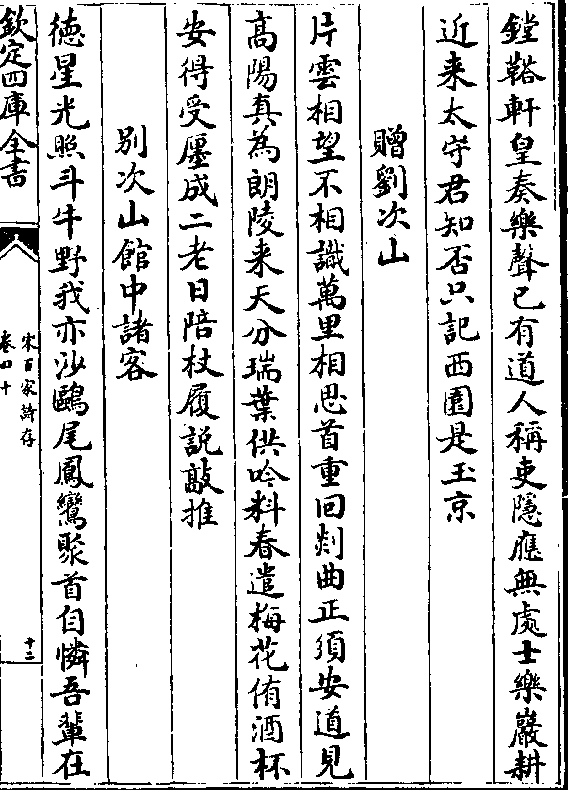 鏜鞳軒皇奏樂聲已有道人稱吏隱應無處士樂巖耕
近来太守君知否只記西園是玉京
贈劉次山
片雲相望不相識萬里相思首重回剡曲正須安道見
高陽真為朗陵来天分瑞葉供吟料春遣梅花侑酒杯
安得受廛成二老日陪杖履説敲推
别次山館中諸客
徳星光照斗牛野我亦沙鷗尾鳳鸞聚首自憐吾輩在
欽定四庫全書
宋百家詩存
卷四十
十二